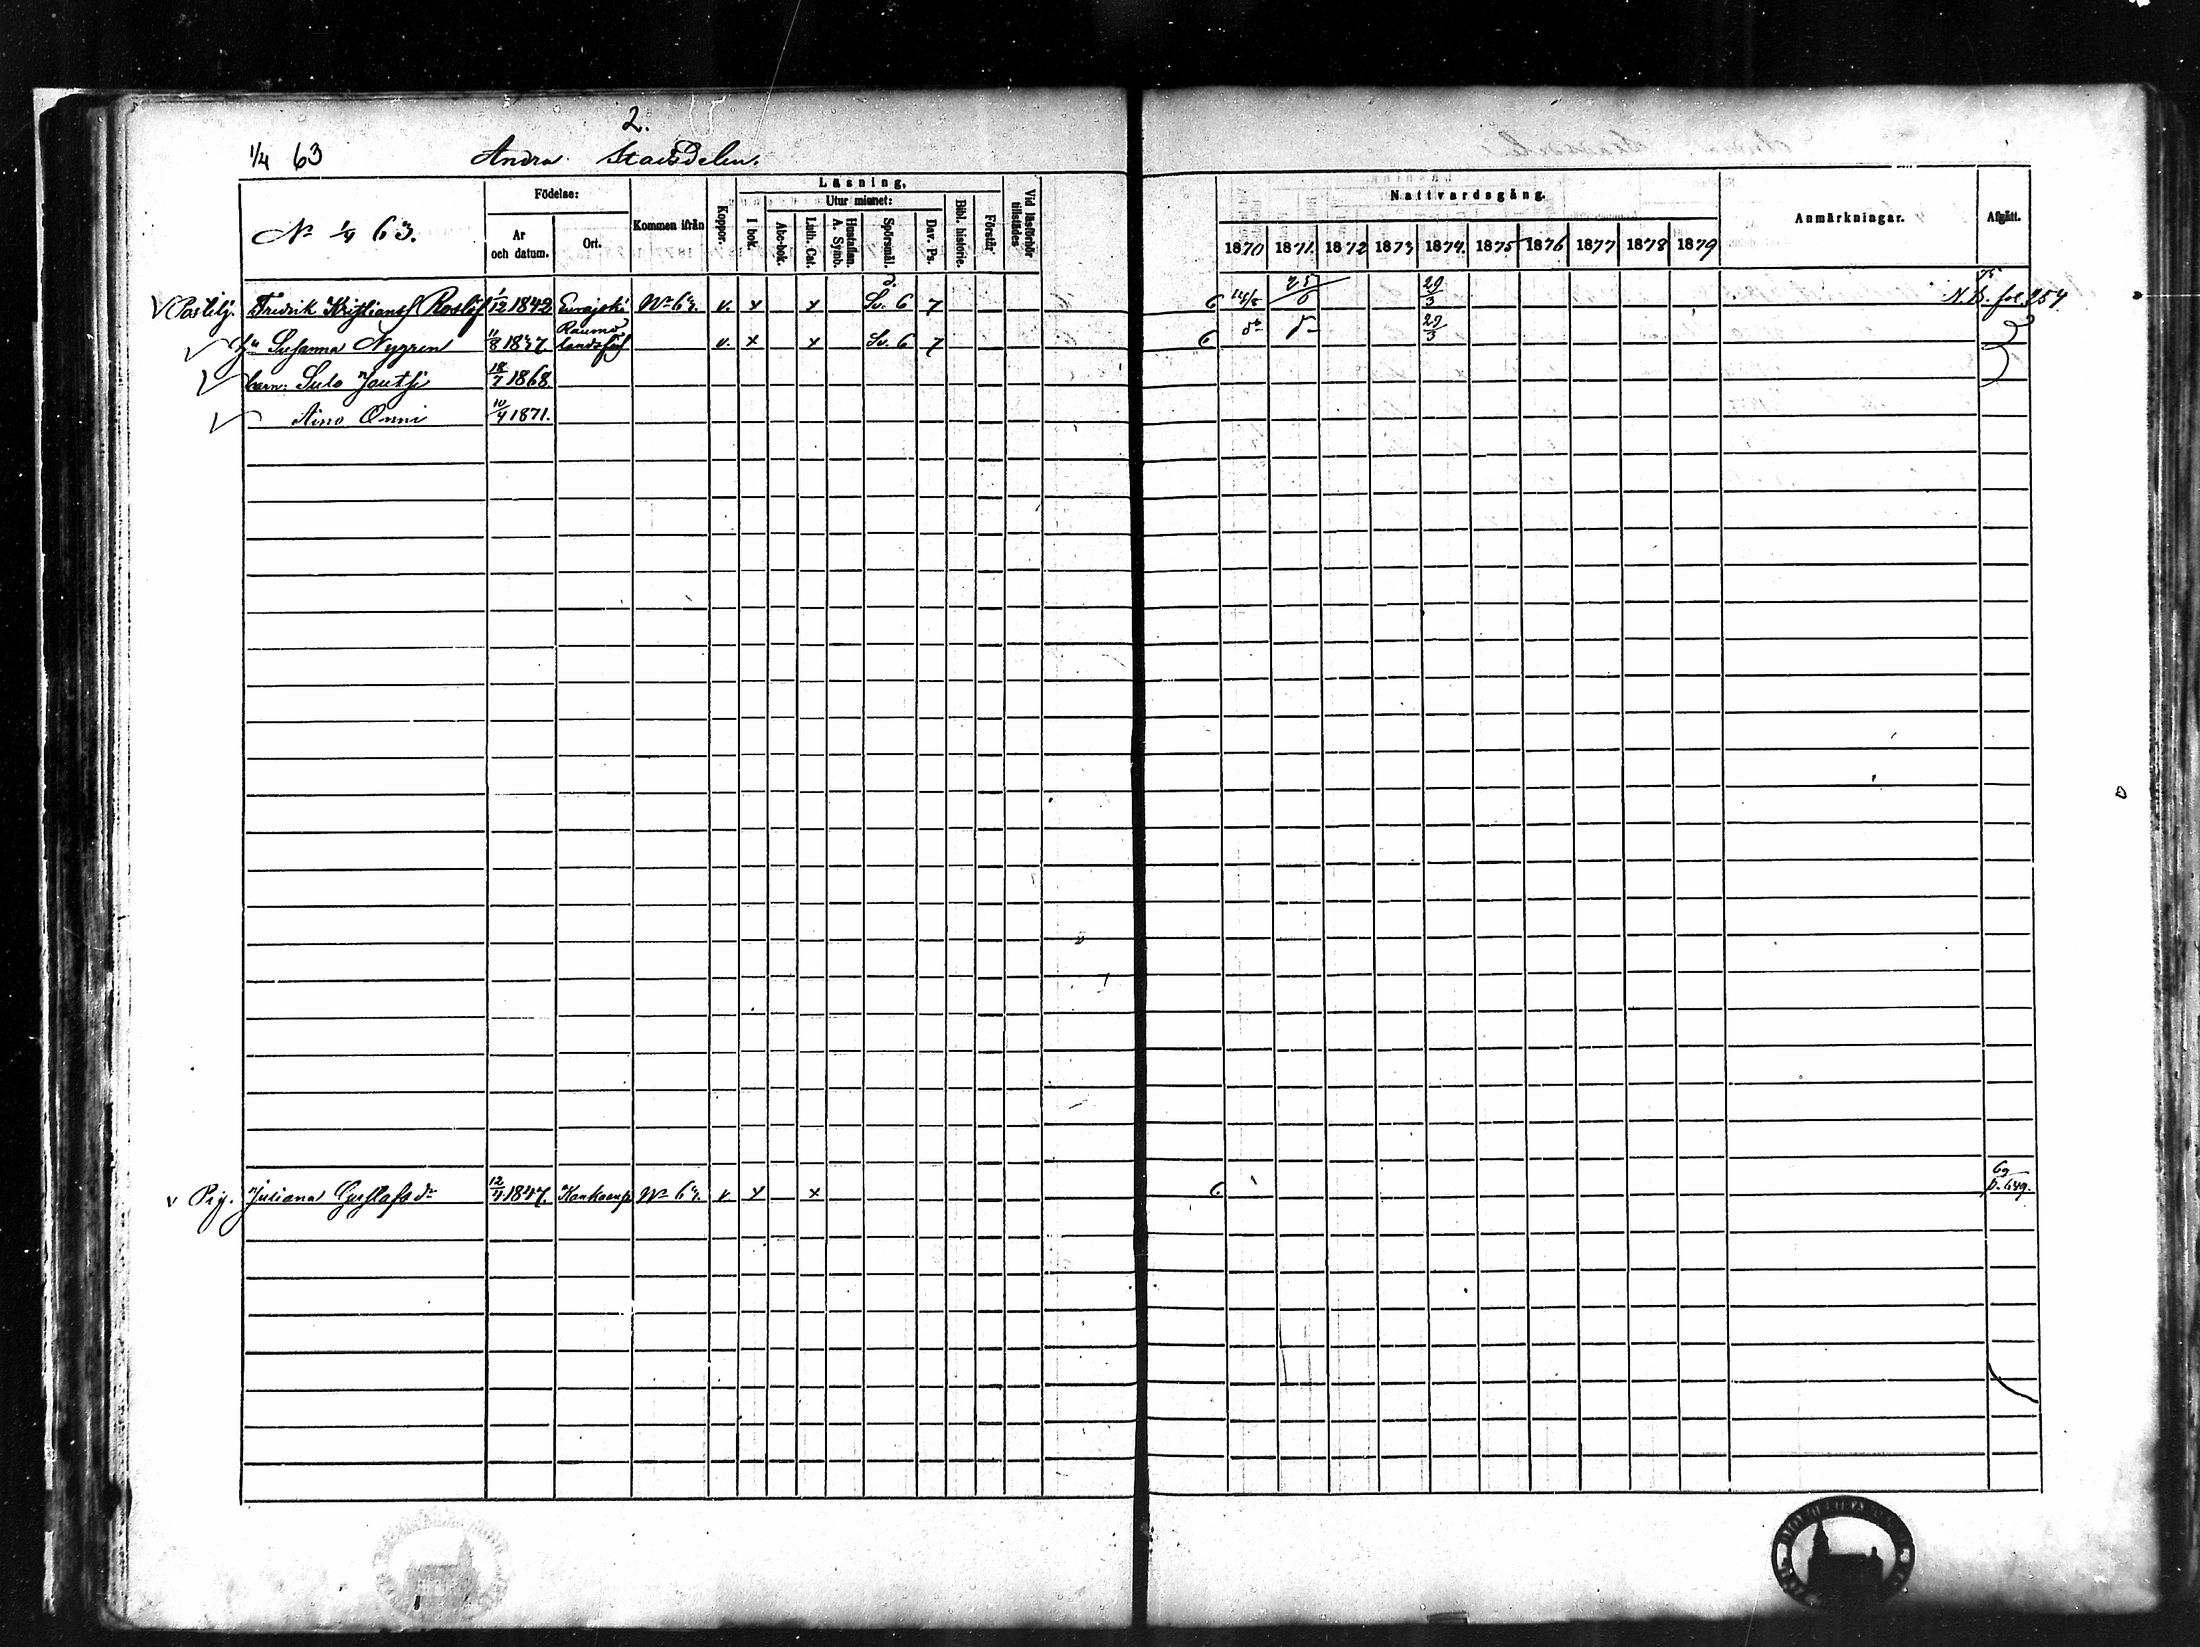 2.
1/4 63 Andra Stadsdelen.
Nº 1/4 63.
Födelse:
År och datum.
Ort.
Kommen ifrån
Koppor.
Läsning,
I bok.
Utur minnet:
Abc-bok.
Luth. Cat.
Hustaflan. A. Symb.
Spörsmål.
Dav. Ps.
Bibl. historie.
Förstår
Vid läsförhör tillstädes
Nattvardsgång.
1870 1871. 1872 1873 1874. 1875 1876 1877 1878 1879
Anmärkningar.
Afgått.
Postilj. Fredrik Kristianss Roslöf 1/12 1842 Eurajoki Nº 63. v. x x Sv. 6 7 6 25/6 29/3 N. B. fol. 254.
Hu Susanna Nygren 11/8 1837 Raumo landsförs v. x x Sv. 6 7 6 29/3
barn: Sulo 18/7 1868
Aino Onni 10/4 1871.
Pig. Juliana Gustafsdr 12/4 1847. Nº 63. v. x x 6 p. 649.